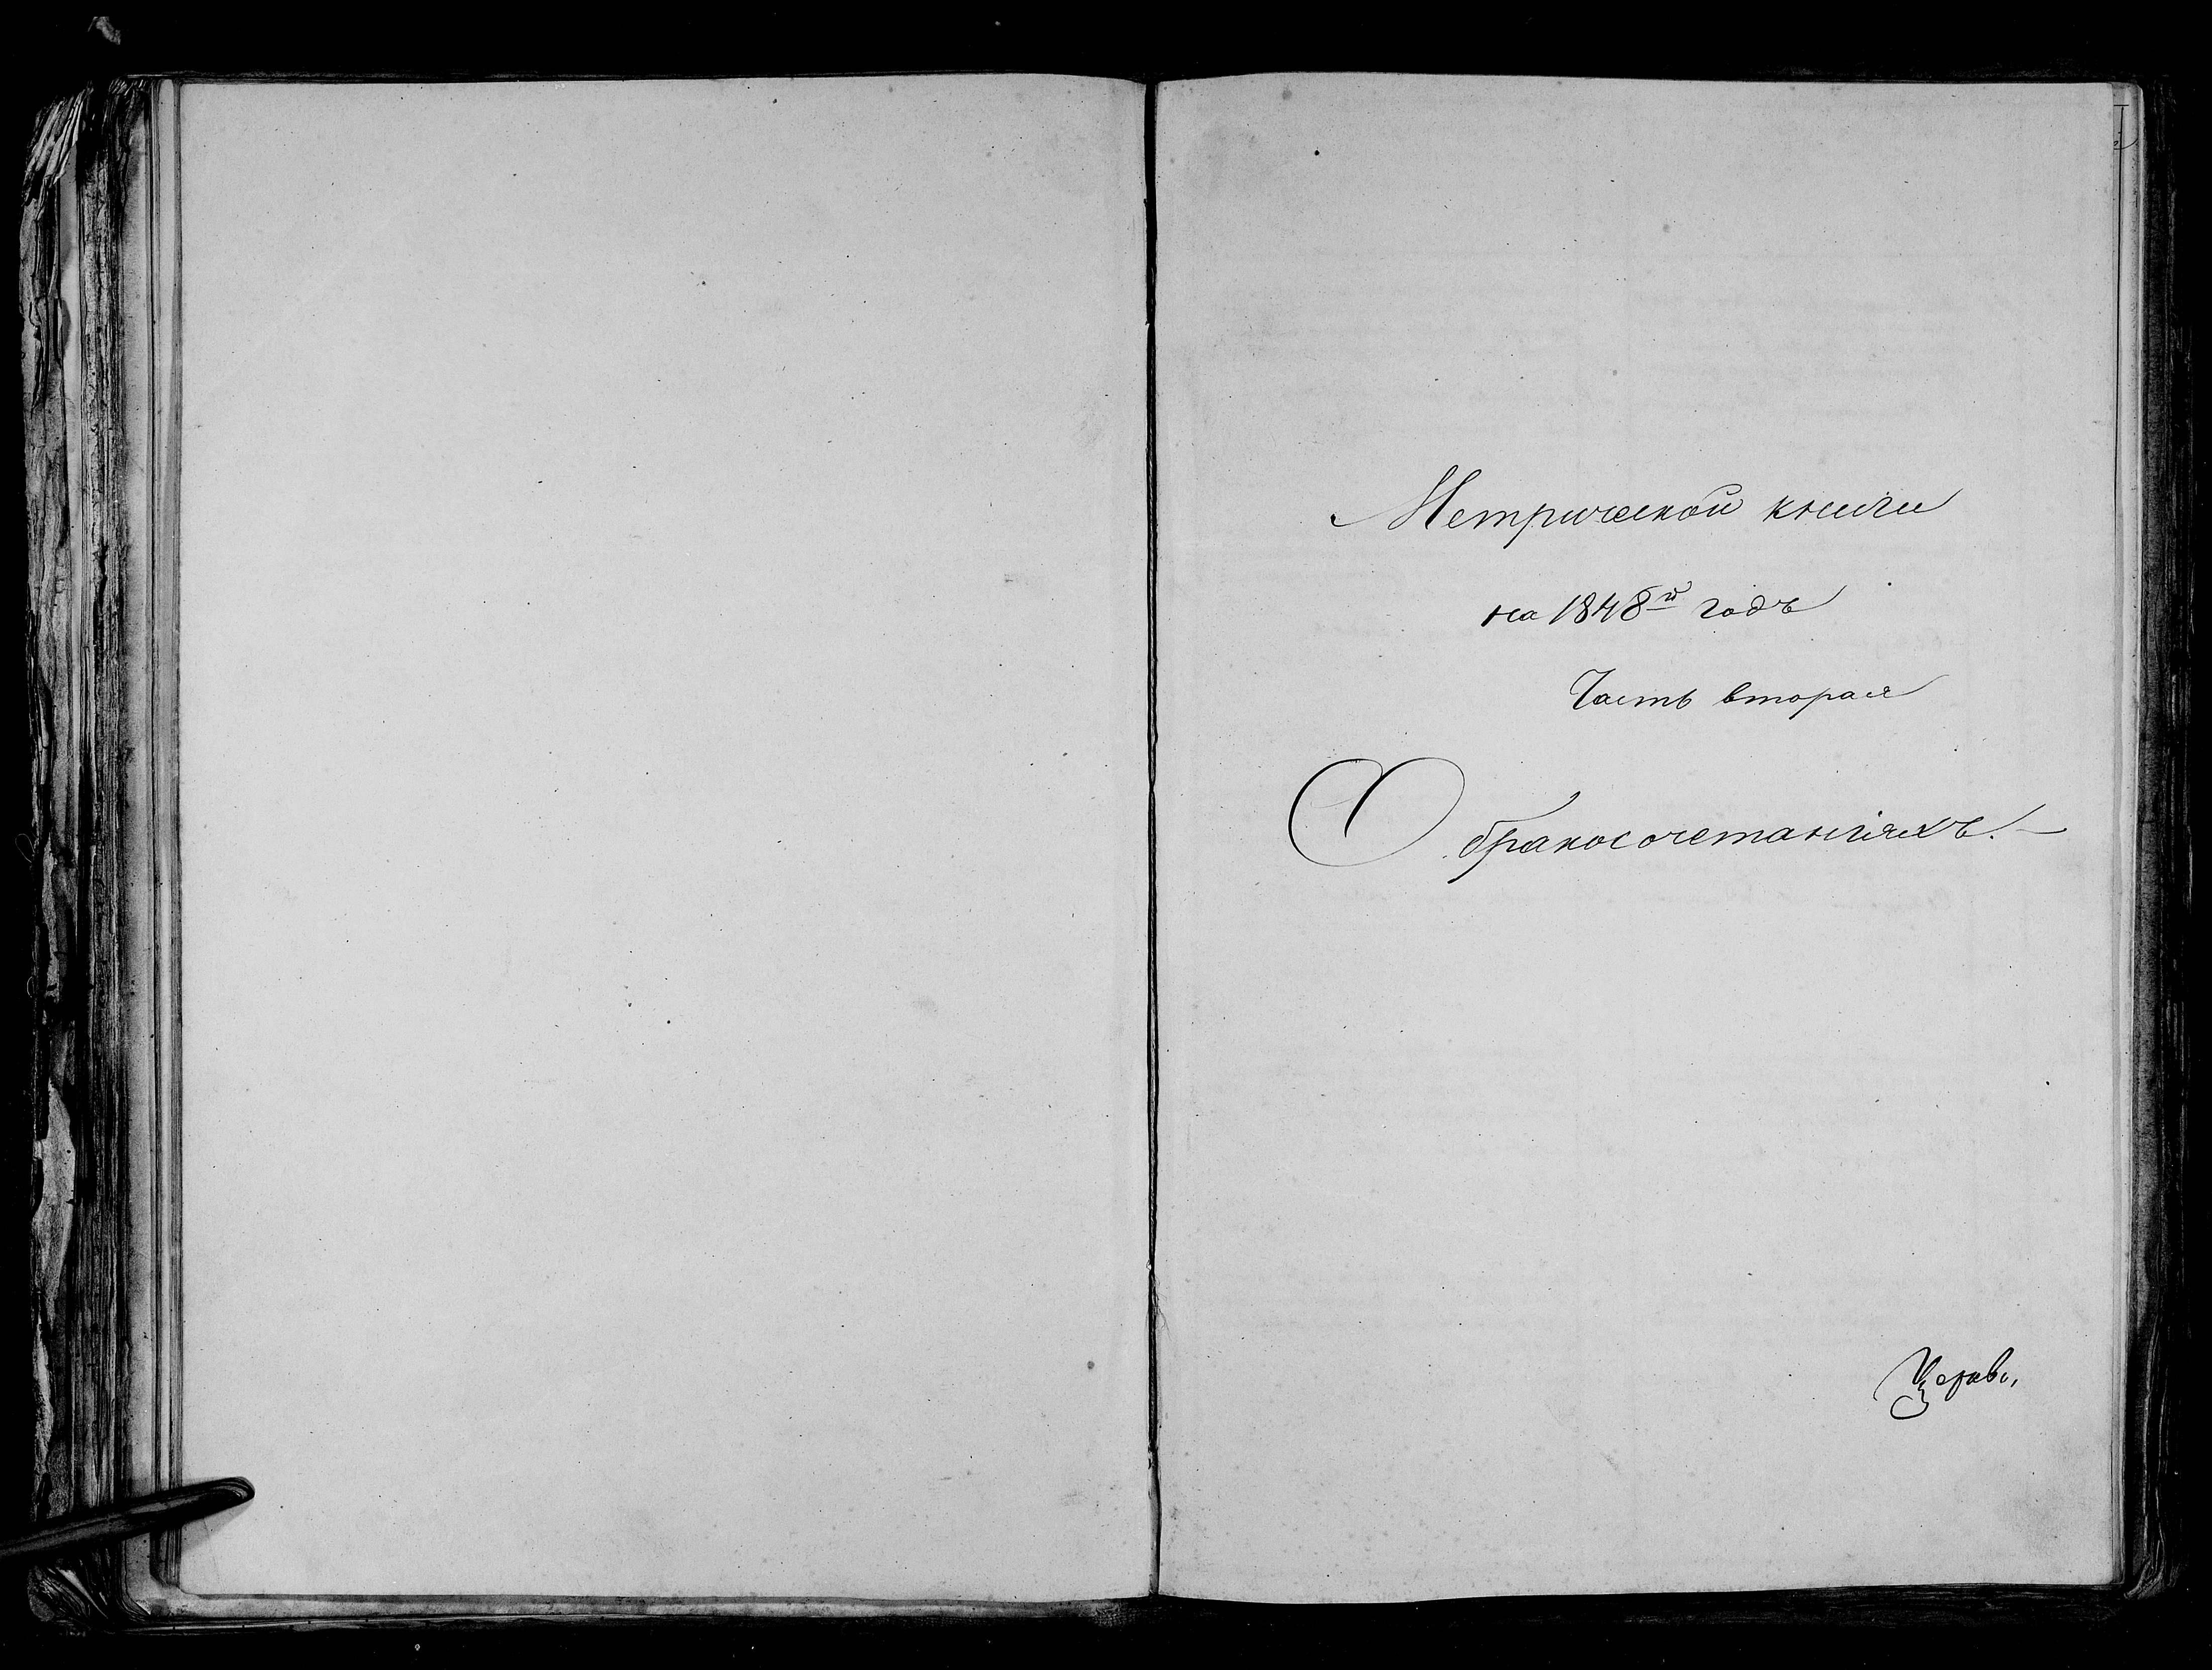 Метрической книги
на 1848й годъ
Часть вторая
О бракосочетанiяхъ.